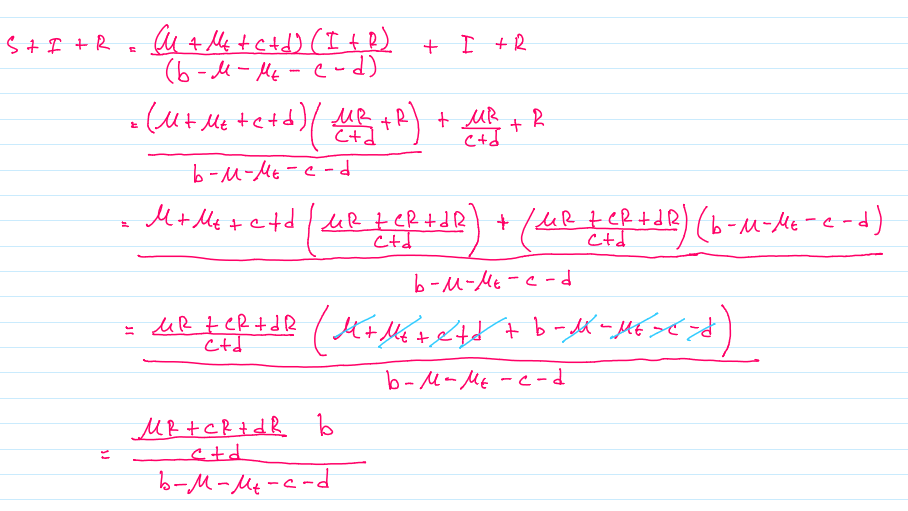 S + I + R = (μ + μₜ + c + d) (I + R) / (b - μ - μₜ - c - d) + I + R
= (μ + μₜ + c + d) ( μR / c+d + R ) / b - μ - μₜ - c - d + μR / c+d + R
= μ + μₜ + c + d ( μR + cR + dR / c+d ) + ( μR + cR + dR / c+d ) (b - μ - μₜ - c - d) / b - μ - μₜ - c - d
= μR + cR + dR / c+d ( μ + μₜ + c + d + b - μ - μₜ - c - d ) / b - μ - μₜ - c - d
= μR + cR + dR / c+d b / b - μ - μₜ - c - d